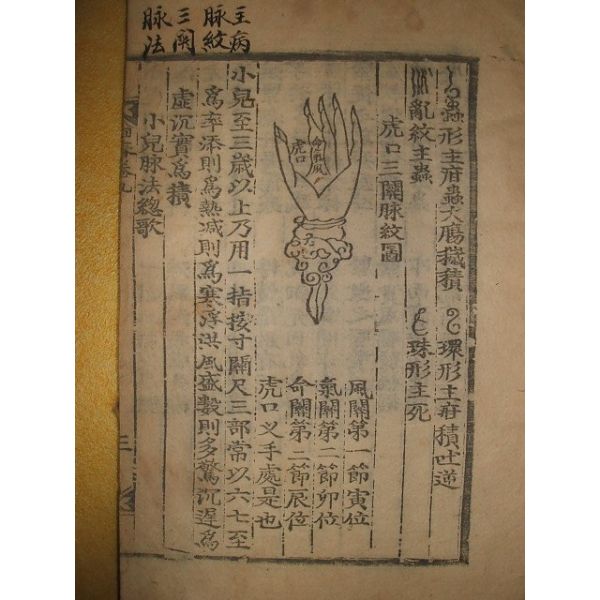 主病
脉紋
三關
脉法
蟲形主府蟲大腸穢積 環形主府積吐逆
亂紋主蟲 珠形主死
虎口三關脉紋圖
命氣風
虎口
風關第一節寅位
氣關第二節卯位
命關第二節辰位
虎口叉手處是也
小兒至三歲以上乃用一指按寸關尺三部常以六七至
爲率添則爲熱減則爲寒浮洪風盛數則多驚沉遲爲
虛沉實爲積
小兒脉法總歌
三